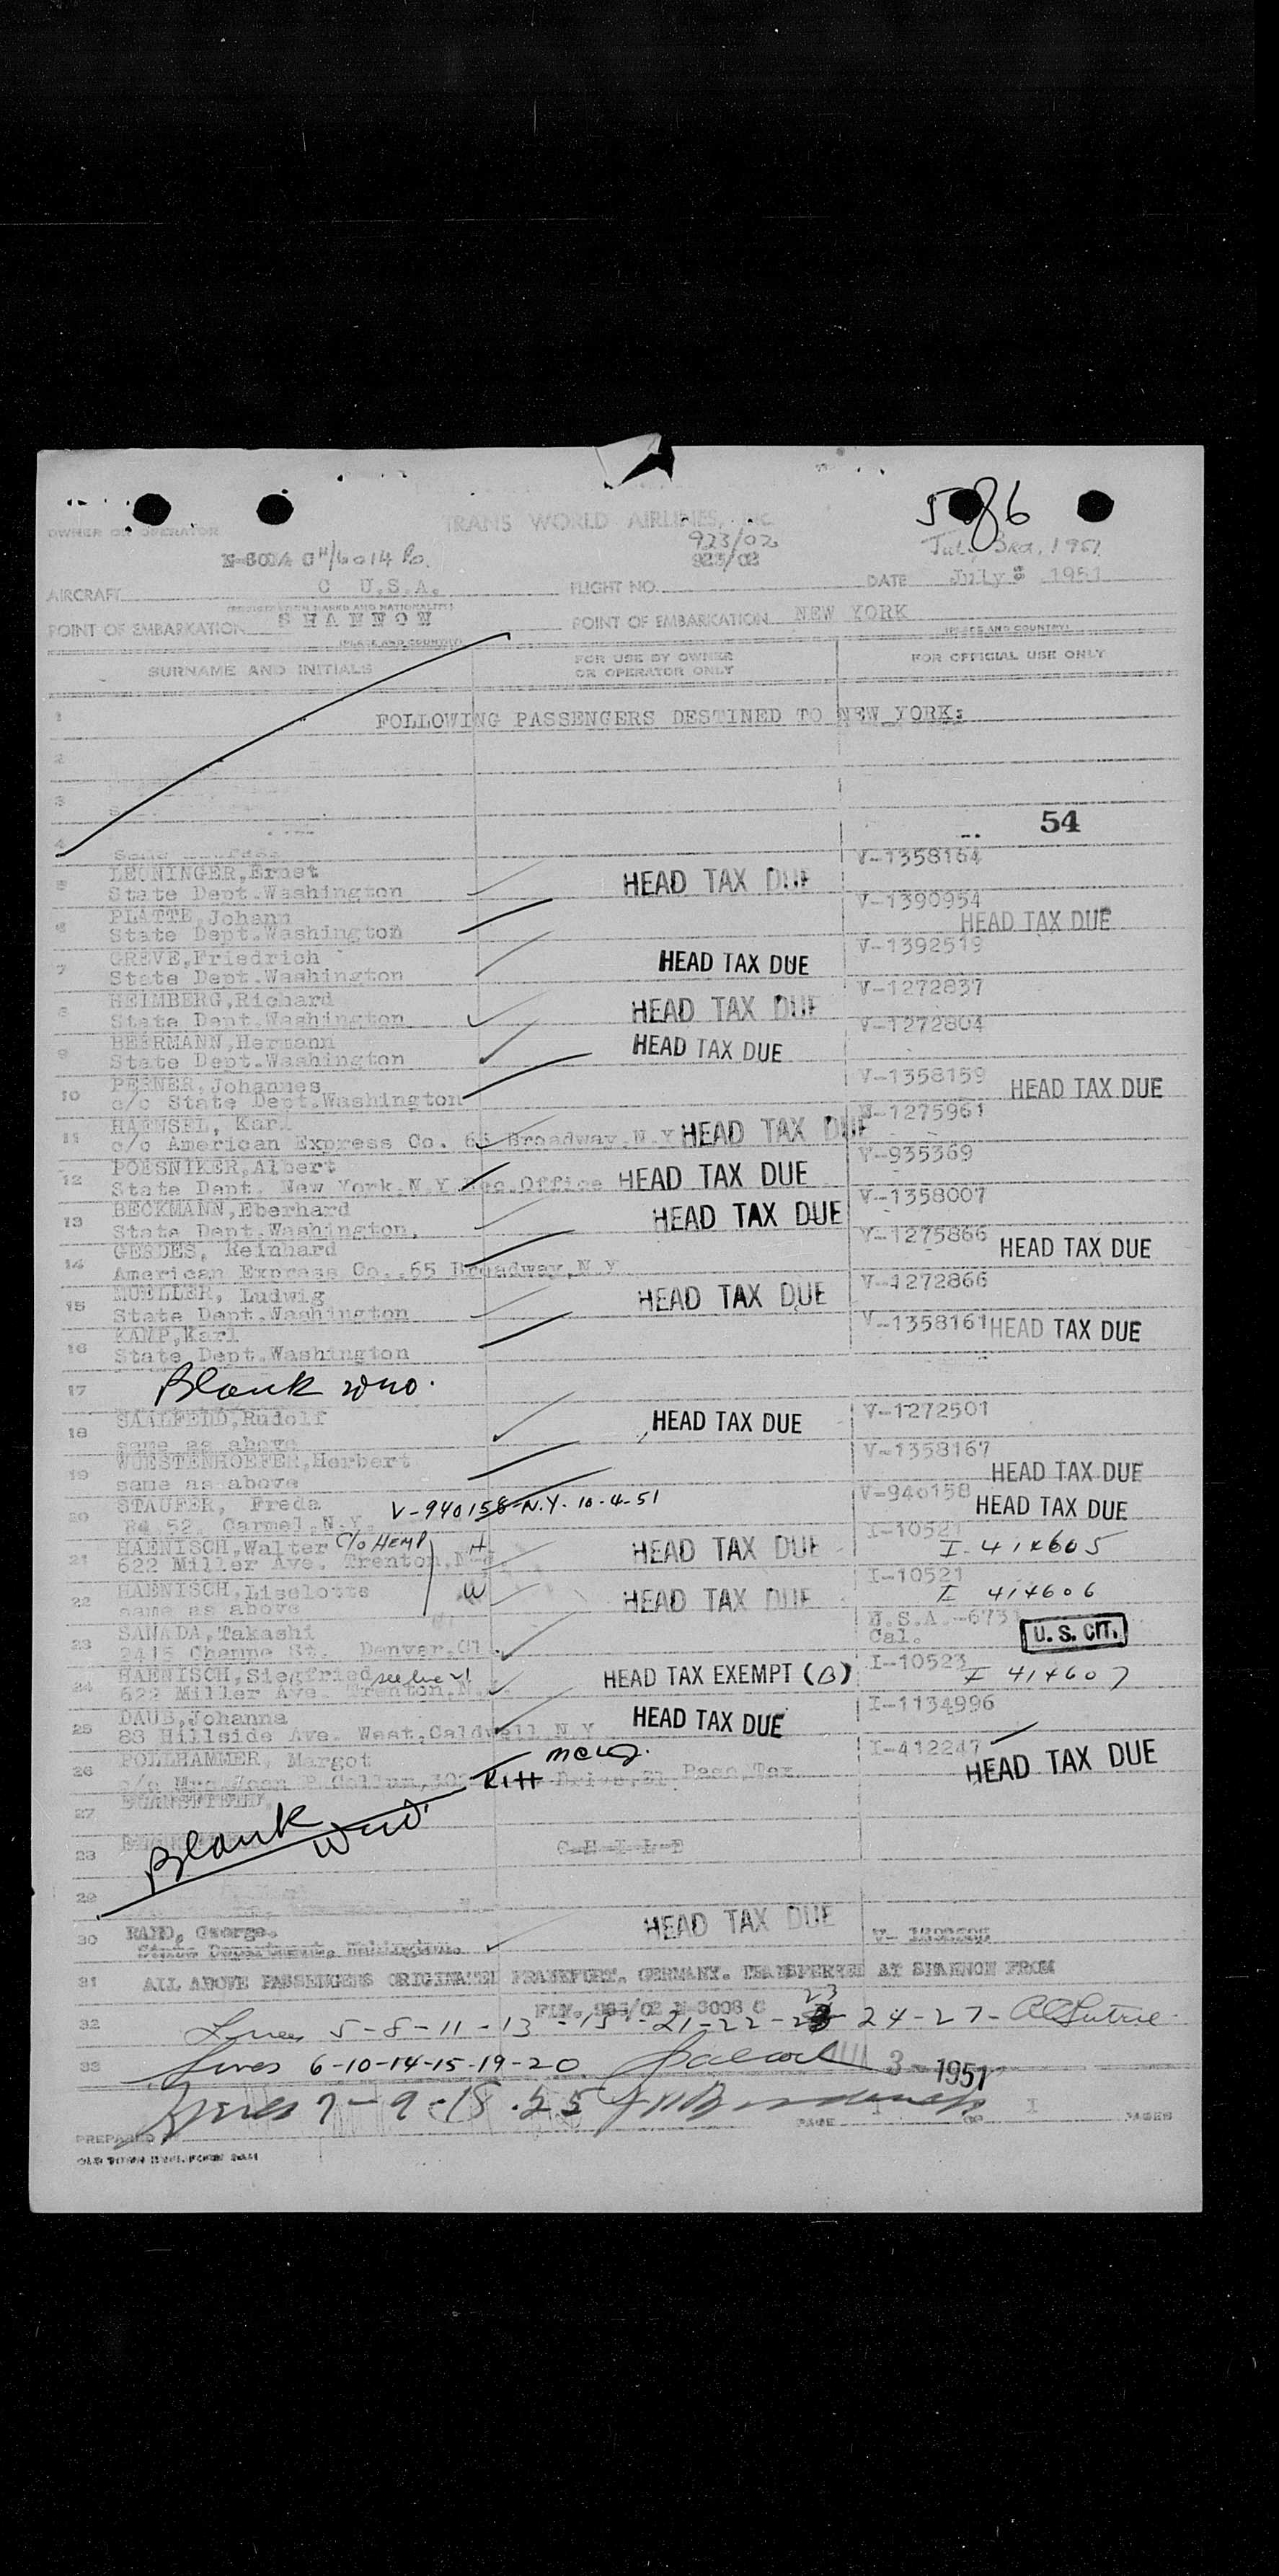 5086
OWNER OR OPERATOR TRANS WORLD AIRLINES, INC.
923/02 July 3rd, 1951
6014
923/02
AIRCRAFT C U.S.A. FLIGHT NO. DATE July 3 1951
(REGISTRATION MARKS AND NATIONALITY)
POINT OF EMBARKATION SHANNON POINT OF EMBARKATION NEW YORK
(PLACE AND COUNTRY) (PLACE AND COUNTRY)
SURNAME AND INITIALS FOR USE BY OWNER OR OPERATOR ONLY FOR OFFICIAL USE ONLY
1 FOLLOWING PASSENGERS DESTINED TO NEW YORK:
2
3
54
4
LEUNINGER,Ernst V-1358164
5 State Dept.Washington HEAD TAX DUE
PLATTE,Johann V-1390954
6 State Dept.Washington HEAD TAX DUE
GREVE,Friedrich V-1392519
7 State Dept.Washington HEAD TAX DUE
HEIMBERG,Richard V-1272837
8 State Dept.Washington HEAD TAX DUE
BEERMANN,Hermann V-1272804
9 State Dept.Washington HEAD TAX DUE
PERNER,Johannes V-1358159
10 c/o State Dept.Washington HEAD TAX DUE
HAENSEL, Karl V-1275961
11 c/o American Express Co. 65 Broadway.N.Y HEAD TAX DUE
POESNIKER,Albert V-935369
12 State Dept. New York.N.Y Rec.Office HEAD TAX DUE
BECKMANN,Eberhard V-1358007
13 State Dept.Washington. HEAD TAX DUE
GERDES, Reinhard V-1275866
14 American Express Co..65 Broadway.N.Y HEAD TAX DUE
MUELLER, Ludwig V-1272866
15 State Dept.Washington HEAD TAX DUE
KAMP,Karl V-1358161 HEAD TAX DUE
16 State Dept.Washington
17 Blank
SAALFELD,Rudolf V-1272501
18 same as above HEAD TAX DUE
WUESTENHOEFER,Herbert V-1358167
19 same as above HEAD TAX DUE
STAUFER, Freda V-940158-N.Y.-10-4-51 V-940158
20 R4.52. Carmel.N.Y HEAD TAX DUE
HAENISCH,Walter C/O HEMP H I-10521
21 622 Miller Ave. Trenton,N.J. HEAD TAX DUE I-414605
HAENISCH,Liselotte W I-10521
22 same as above HEAD TAX DUE I 414606
SANADA,Takashi U.S.A.
23 2415 Champe St. Denver. Cal. U. S. CIT.
HAENISCH,Siegfried I-10523
24 622 Miller Ave. Trenton.N. HEAD TAX EXEMPT (B) I 414607
DAUB,Johanna I-1134996
25 88 Hillside Ave. West.Caldwell.N.Y HEAD TAX DUE
POLLHAMMER, Margot I-412247
26 c/o HEAD TAX DUE
27
28 Blank C-H-I-L-E
29
30 George. HEAD TAX DUE
State Department, Washington.
31 ALL ABOVE PASSENGERS ORIGINATED FRANKFURT, GERMANY. TRANSFERRED AT SHANNON FROM
FLT.
32 Lines 5-8-11-13-15-21-22-23 24-27-
33 Lines 6-10-14-15-19-20 JUL 3-1951
Lines 7-9-18.25
PREPARED PAGE 1 OF 1 PAGES